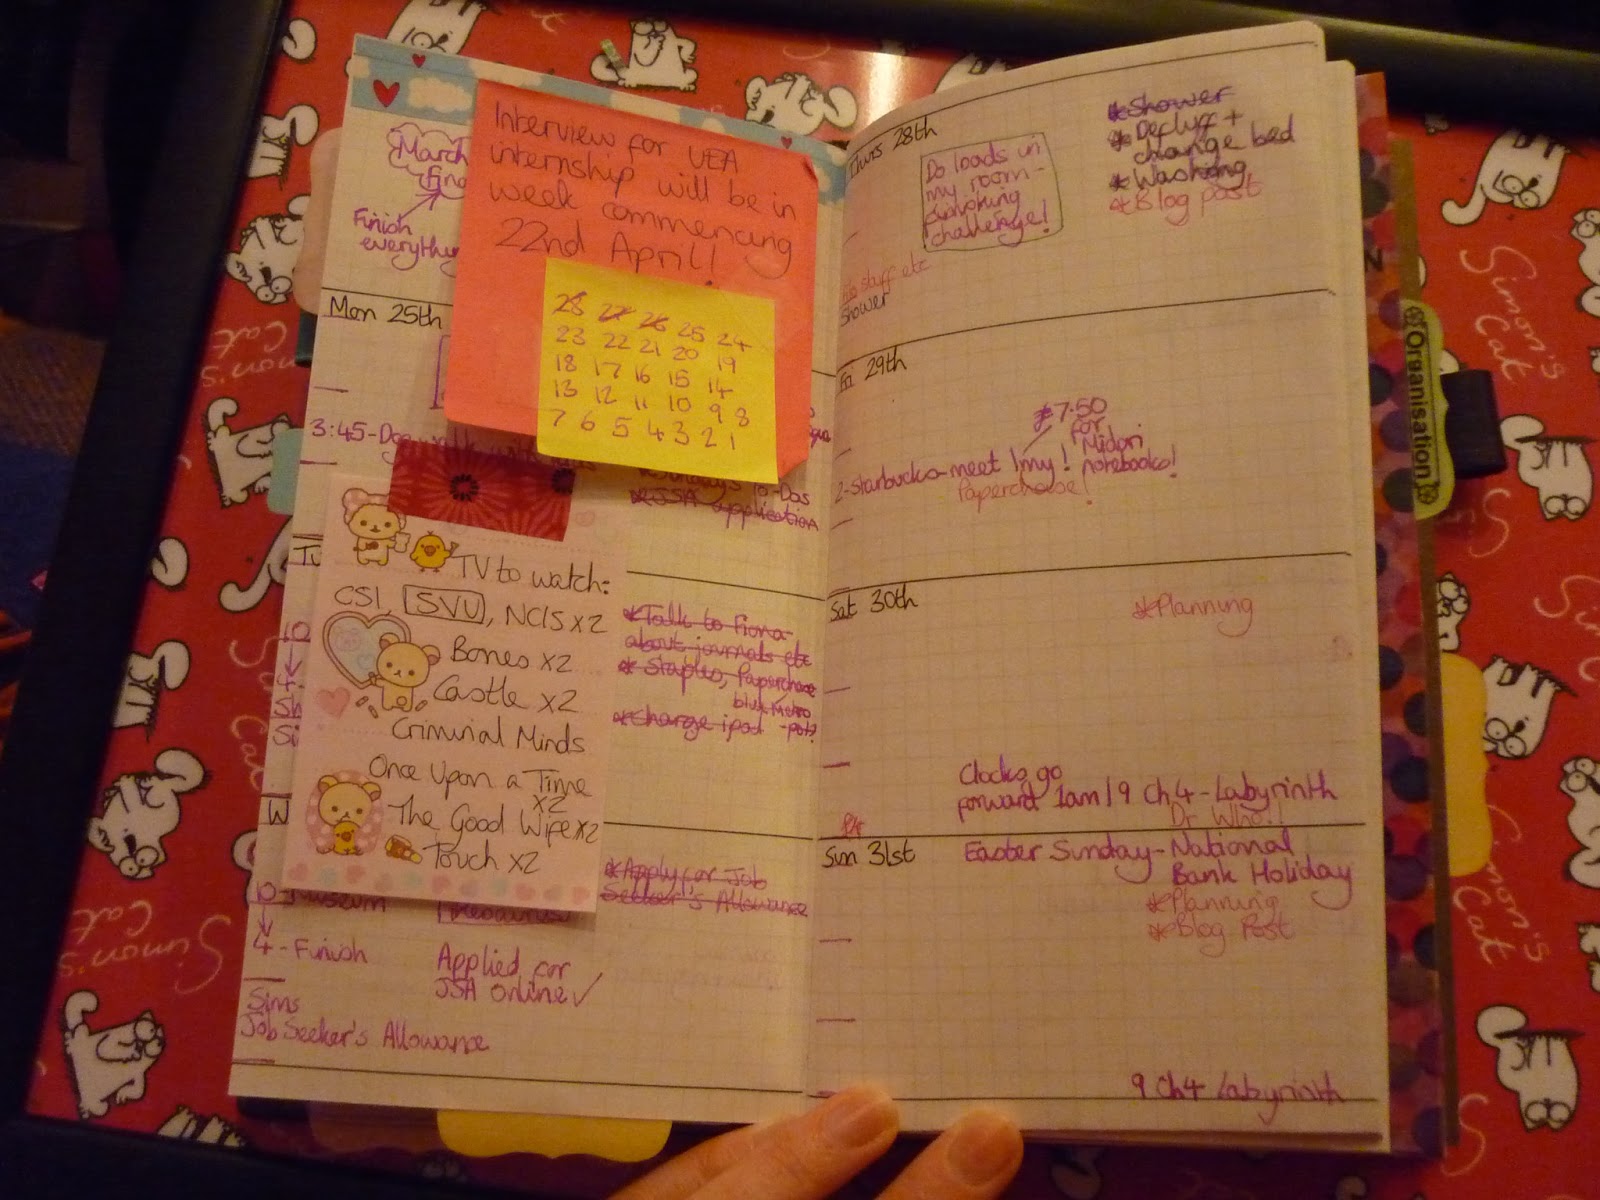 March
Fin
Finish
everything
Interview for UEA
internship will be in
week commencing
22nd April!
28 27 26 25 24
23 22 21 20 19
18 17 16 15 14
13 12 11 10 9 8
7 6 5 4 3 2 1
Mon 25th
3:45-Dog walk with
To-Das
*JSA application
TV to watch:
CSI, SVU, NCIS x2
Bones x2
Castle x2
Criminal Minds
Once Upon a Time
x2
The Good Wife x2
Touch x2
Tu
10
*Talk to Fiona
about journals etc
*Staples, Paperchase
blue Metro
*Charge ipod
W
*Apply for Job
Seeker's Allowance
10-Museum
4-Finish
Applied for
JSA online ✓
Sims
Job Seeker's Allowance
Thurs 28th
Do loads in
my room-
challenge!
*Shower
*Defluff +
change bed
*Washing
*Blog post
stuff etc
Shower
Fri 29th
£7.50
for
Midori
notebooks!
2-Starbucks-meet Imy!
Paperchase!
Sat 30th
*Planning
Clocks go
forward 1am
9 Ch4-Labyrinth
Dr Who!!
Sun 31st
Easter Sunday-National
Bank Holiday
*Planning
*Blog Post
9 Ch4 Labyrinth
Organisation
Simon's
Cat
Simon's
Cat
Simon's
Cat
Simon's